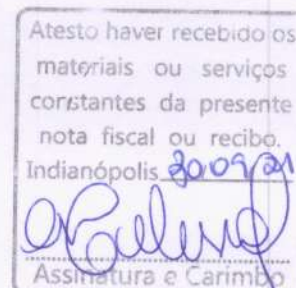 Atesto haver recebido os
materiais ou serviços
constantes da presente
nota fiscal ou recibo.
Indianópolis 30/09/21
Assinatura e Carimbo